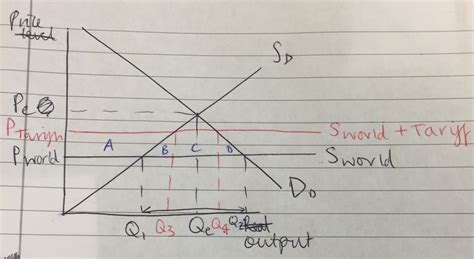 Price
level
S_D
Pe
P Tariff
S world + Tariff
A B C D
P world
S world
D_D
Q1 Q3 Qe Q4 Q2
output